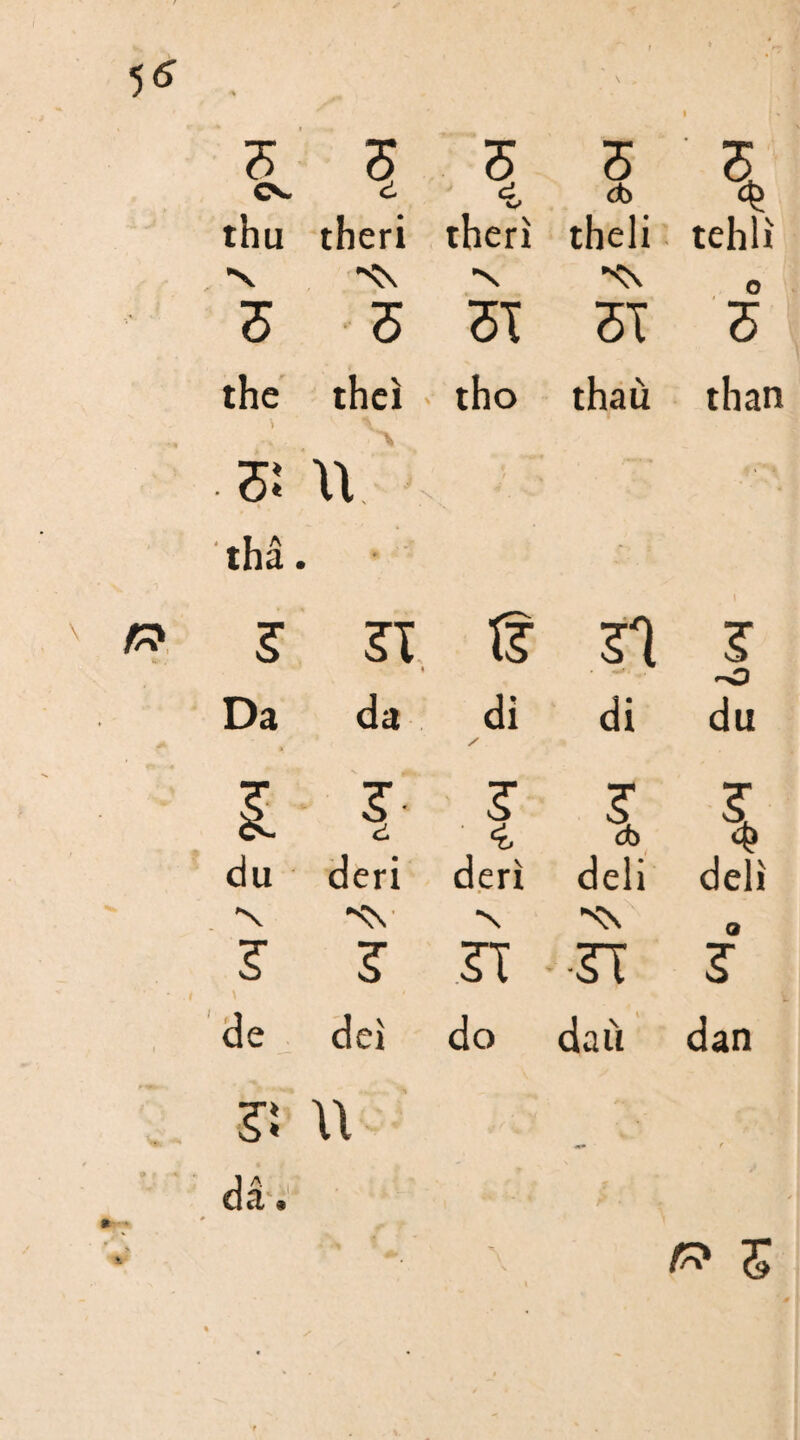 56
ठू ठृ ठॄ ठॢ ठॣ
thu theri therì theli tehlì
ठे ठै ठो ठौ ठं
the theì tho thaù than
ठः ॥
thâ.
ड डा डि डी डु
Da da di di du
डू डृ डॄ डॢ डॣ
du deri derì deli delì
डे डै डो डौ डं
de deì do daù dan
डः ॥
dâ.
ढ